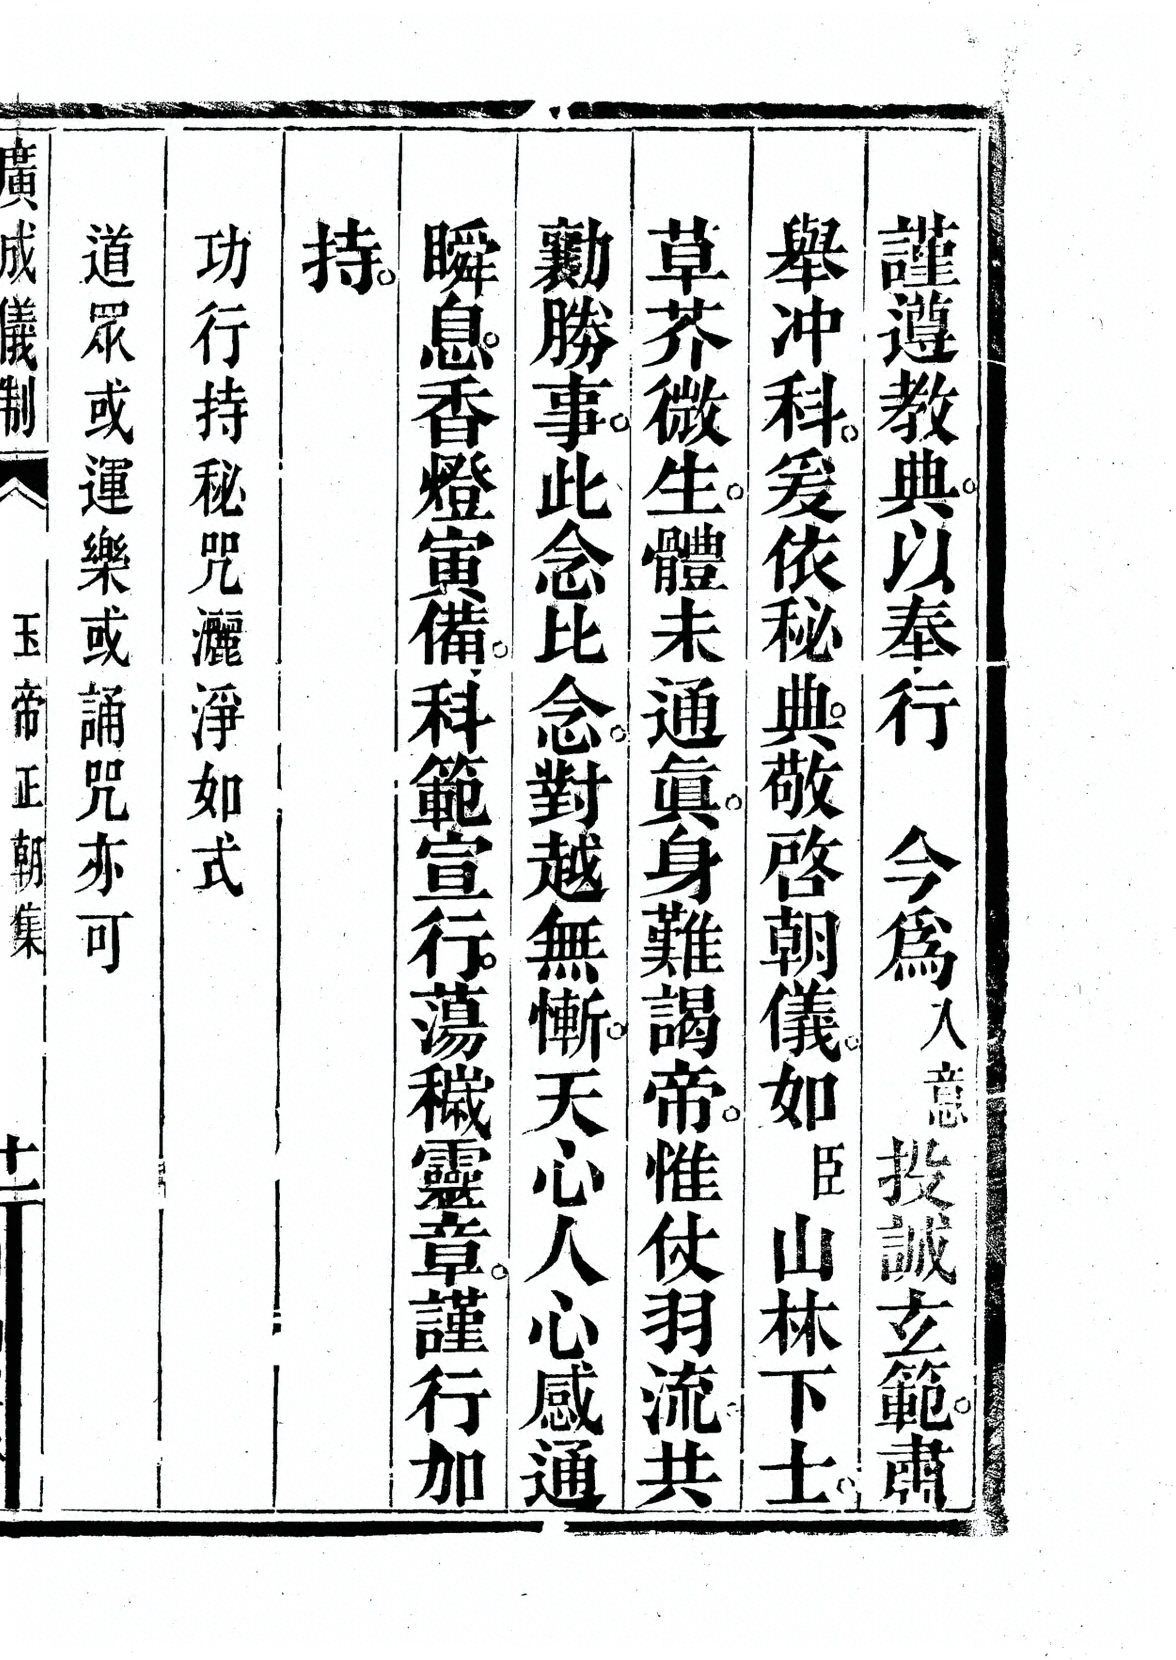 謹遵教典。以奉行　今爲入意投誠玄範。肅
舉冲科。爰依秘典。敬啓朝儀。如臣山林下士。
草芥微生。體未通眞。身難謁帝。惟仗羽流。共
勷勝事。此念比念。對越無慚。天心人心感通
瞬息。香燈寅備。科範宣行。蕩穢靈章。謹行加
持。
功行持秘咒灑淨如式
道眾或運樂或誦咒亦可
廣成儀制　玉帝正朝集　十一